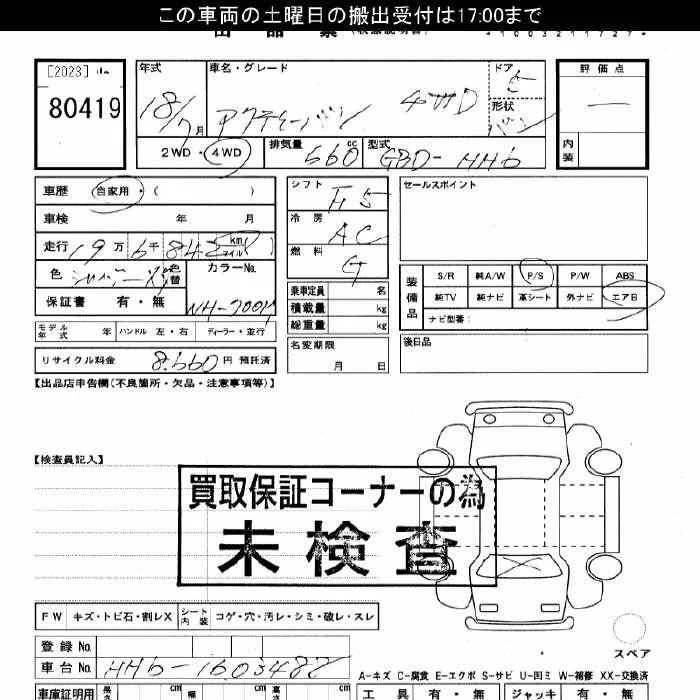 この車両の土曜日の搬出受付は17:00まで
[2023]
80419
年式 車名・グレード ドア 5
18/7月 アクティーバン 4WD
形状 バン
評価点
内装
2WD・4WD 排気量 660 cc 型式 GBD-HH6
車歴 自家用・( )
車検 年 月
走行 19万6千842 km マイル
色 シルバー 色替
カラーNo. NH-700M
保証書 有・無
シフト F5
冷房 AC
燃料 G
乗車定員 名
積載量 kg
総重量 kg
名変期限 月 日
セールスポイント
装備品
S/R 純A/W P/S P/W ABS
純TV 純ナビ 革シート 外ナビ エアB
ナビ型番:
後日品
モデル年式 年 ハンドル 左・右 ディーラー・並行
リサイクル料金 8,660 円 預託済
【出品店申告欄(不良箇所・欠品・注意事項等)】
【検査員記入】
買取保証コーナーの為
未検査
FW キズ・トビ石・割レX シート内装 コゲ・穴・汚レ・シミ・破レ・スレ
スペア
登録No.
車台No. HH6-1603487
A-キズ C-腐食 E-エクボ S-サビ U-凹ミ W-補修 XX-交換済
車庫証明用 長さ cm 幅 cm 高さ cm
工具 有・無 ジャッキ 有・無